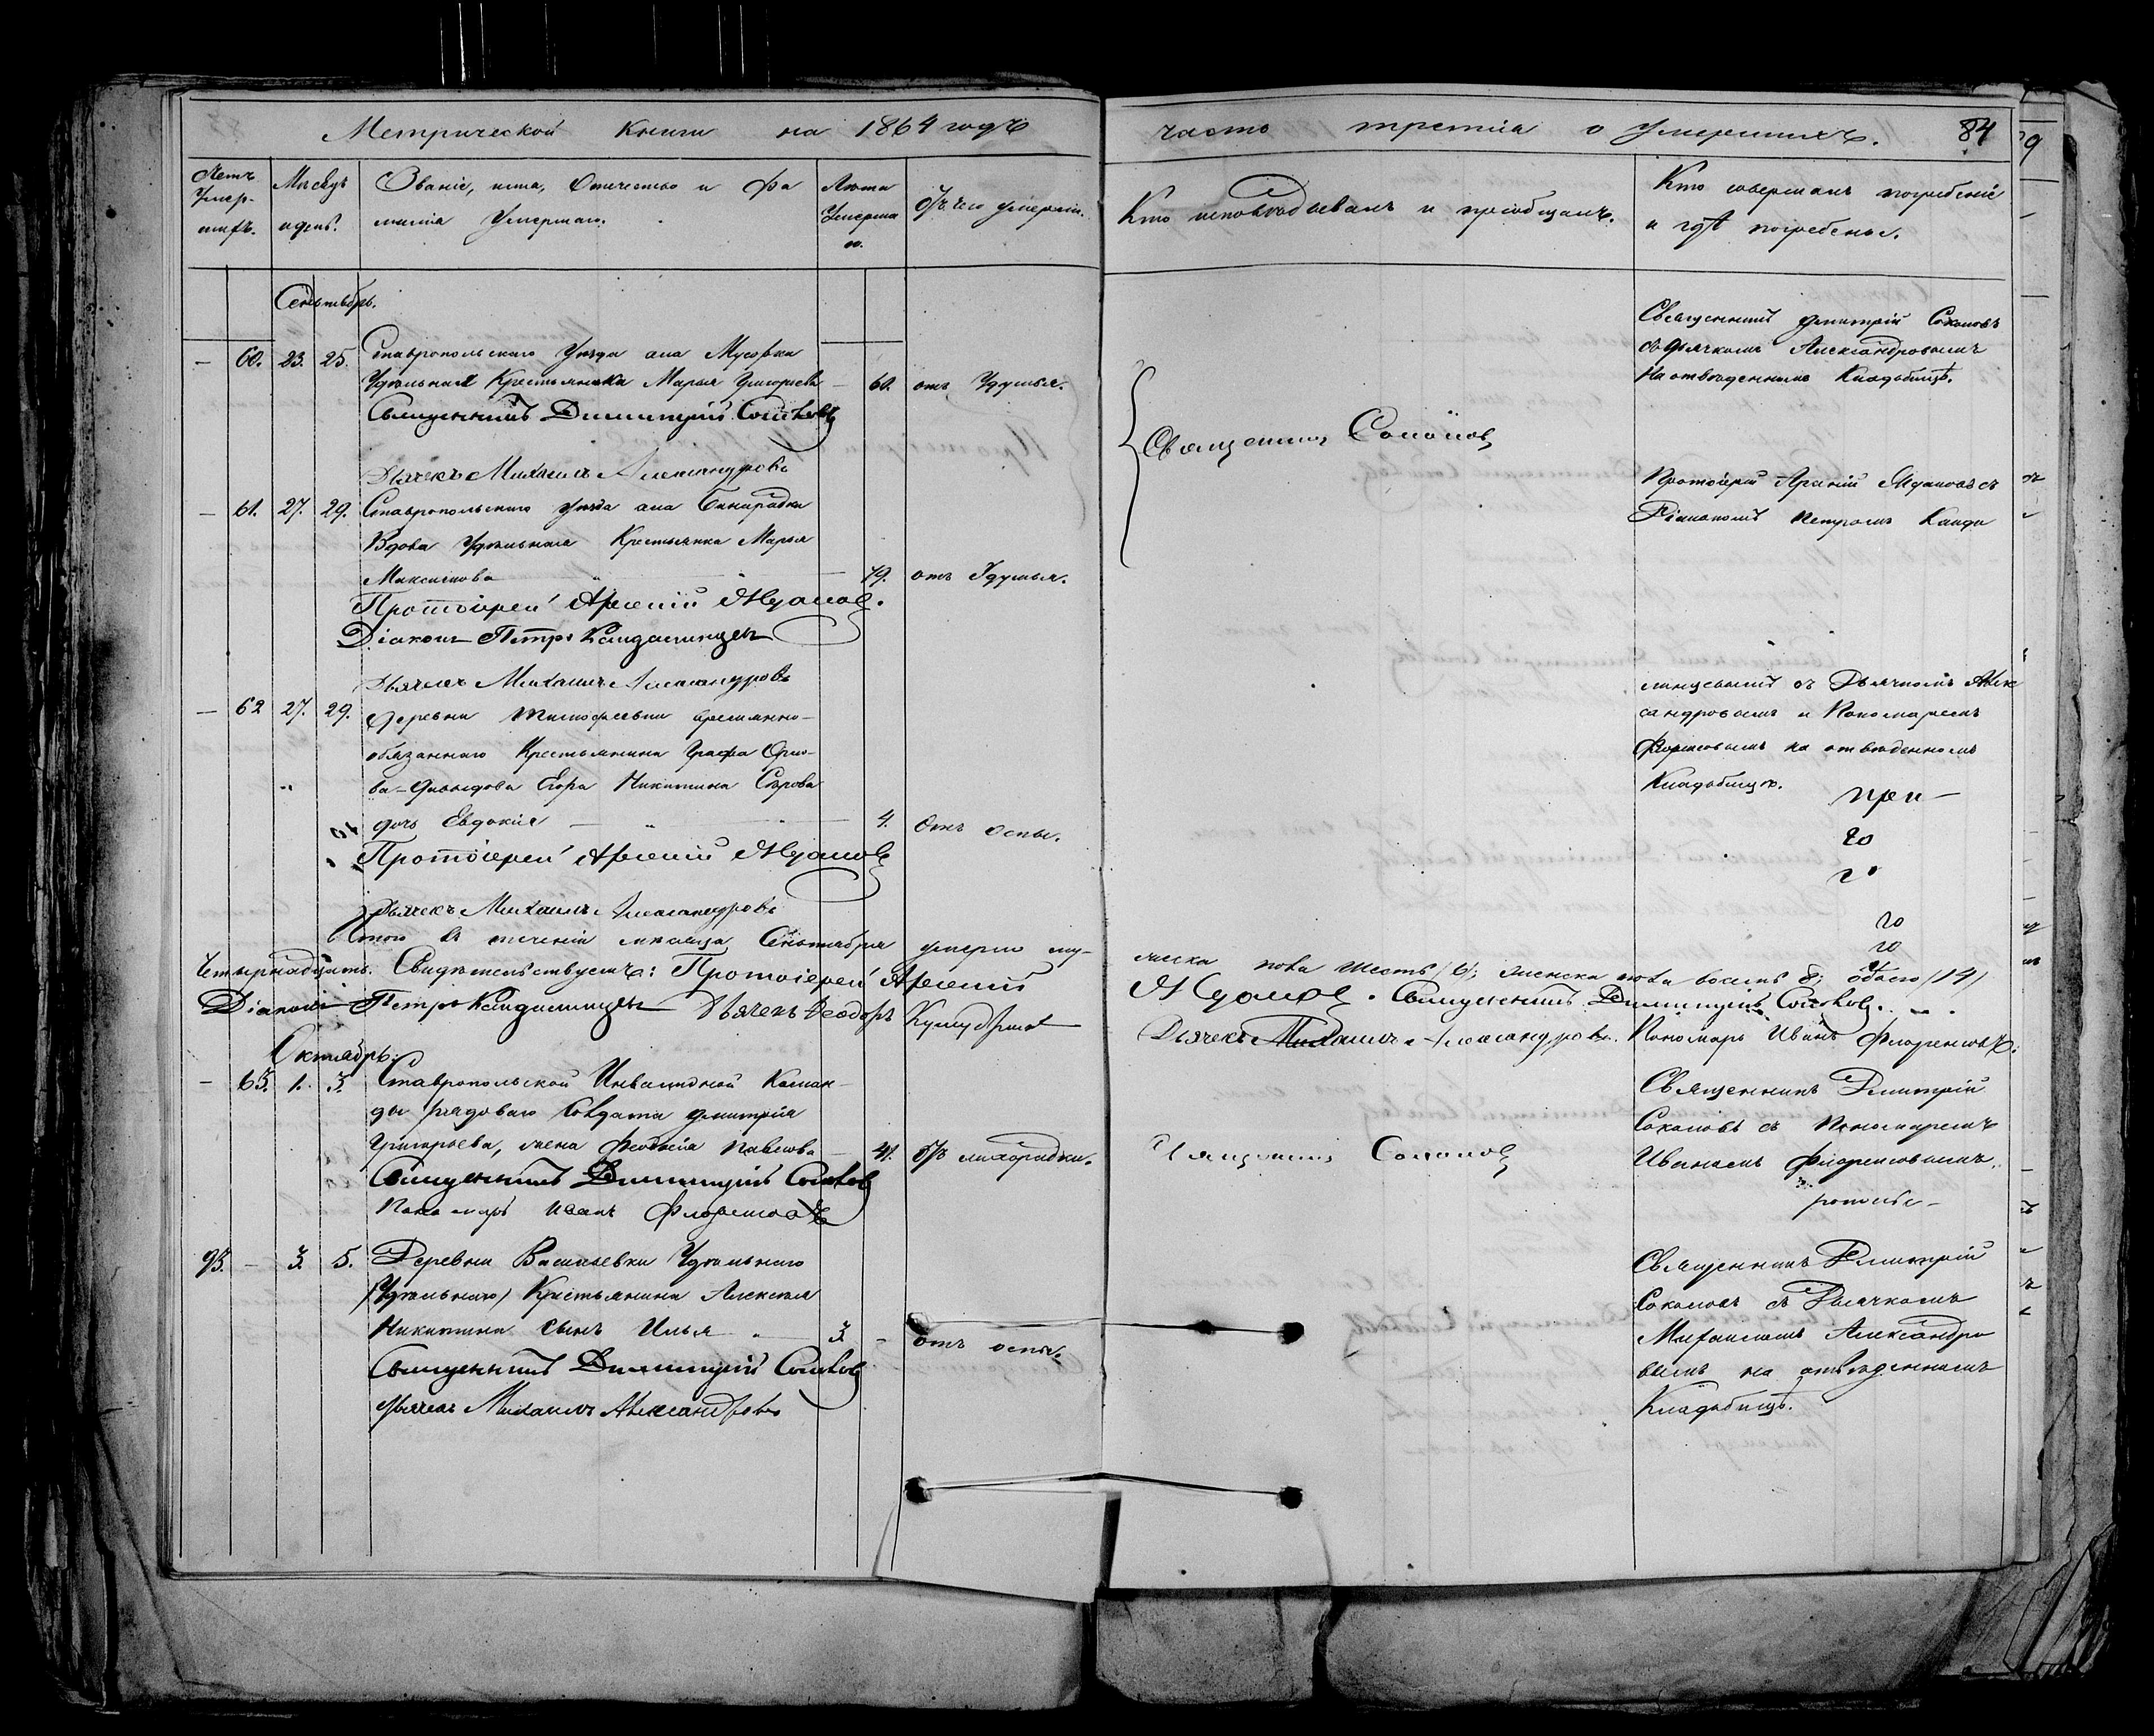 Метрической Книги на 1864 годъ
часть третія о умершихъ. 84
Счетъ Умер-шихъ.
Мѣсяцъ и день.
Званіе, имя, Отечество и фамилія Умершаго.
Лѣта Умершаго.
Отъ чего умеръ.
Кто исповѣдывалъ и пріобщалъ.
Кто совершалъ погребеніе
и гдѣ погребены.
Сентябрь.
— 60. 23. 25. Ставропольскаго Уѣзда села Мусорки
Удѣльная Крестьянка Марья Григорьева — 60. отъ Удушья.
Священникъ Димитрій Соколовъ
Дьячекъ Михаилъ Александровъ
Священникъ Соколовъ
Священникъ Дмитрій Соколовъ
съ Дьячкомъ Александровымъ
На отведенномъ Кладбищѣ.
— 61. 27. 29. Ставропольскаго уѣзда села
Вдова Удѣльная Крестьянка Марья
Максимова — 79. отъ Удушья.
Протоіерей Арсеній
Діаконъ Петръ
Дьячекъ Михаилъ Александровъ
Протоіерей Арсеній съ
Діакономъ Петромъ Канда
— 62 27. 29. Деревни Тимофеевки временно-
обязаннаго Крестьянина Графа Орло-
ва-Давыдова Егора Никитина Сѣрова
дочь Евдокія — 4. Отъ оспы.
Протоіерей Арсеній
Дьячекъ Михаилъ Александровъ
линцевымъ съ Дьячкомъ Алек
сандровымъ и Пономаремъ
Флоренсовымъ на отведенномъ
Кладбищѣ.
Итого въ теченіи мѣсяца Сентября умерло му-
жеска пола шесть (6); женска пола восемь 8; обоего (14)
Четырнадцать. Свидѣтельствуемъ: Протоіерей Арсеній
Священникъ Димитрій Соколовъ.
Діаконъ Петръ Дьячекъ Ѳеодоръ
Дьячекъ Михаилъ Александровъ. Пономарь Иванъ Флоренсовъ.
Октябрь.
— 63. 1. 3. Ставропольской Инвалидной Коман-
ды рядоваго Солдата Дмитрія
Григорьева, жена Павлова — 41. Отъ лихорадки.
Священникъ Димитрій Соколовъ
Пономарь Иванъ Флоренсовъ
Священникъ Соколовъ
Священникъ Дмитрій
Соколовъ съ Пономаремъ
Иваномъ Флоренсовымъ.
93. — 3. 5. Деревни Васильевки Удѣльнаго
(Удѣльнаго) Крестьянина Алексѣя
Никитина сынъ Илья 3. — отъ оспы.
Священникъ Димитрій Соколовъ
Дьячекъ Михаилъ Александровъ
Священникъ Дмитрій
Соколовъ съ Дьячкомъ
Михаиломъ Александро
вымъ на отведенномъ
Кладбищѣ.